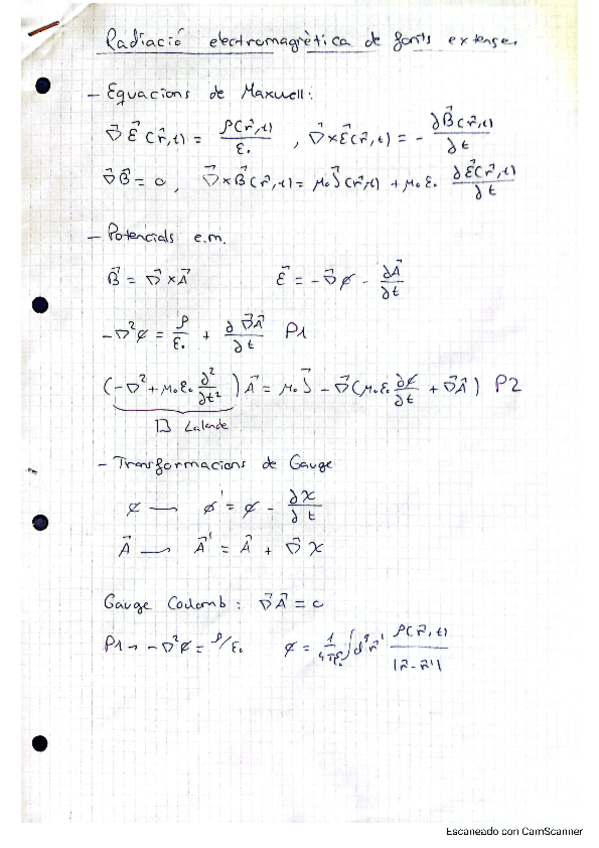 Radiació electromagnètica de fonts extenses
- Equacions de Maxwell:
∇⃗ E⃗(r⃗,t) = ρ(r⃗,t)/ε₀ , ∇⃗×E⃗(r⃗,t) = - ∂B⃗(r⃗,t)/∂t
∇⃗B⃗ = 0 , ∇⃗×B⃗(r⃗,t) = μ₀J⃗(r⃗,t) + μ₀ε₀ ∂E⃗(r⃗,t)/∂t
- Potencials e.m.
B⃗ = ∇⃗×A⃗ E⃗ = -∇⃗φ - ∂A⃗/∂t
-∇²φ = ρ/ε₀ + ∂∇⃗A⃗/∂t P1
(-∇² + μ₀ε₀ ∂²/∂t²) A⃗ = μ₀J⃗ - ∇⃗(μ₀ε₀ ∂φ/∂t + ∇⃗A⃗) P2
□
- Transformacions de Gauge
φ → φ' = φ - ∂χ/∂t
A⃗ → A⃗' = A⃗ + ∇⃗χ
Gauge Coulomb: ∇⃗A⃗ = 0
P1 → -∇²φ = ρ/ε₀ φ = 1/4πε₀ ∫d³r⃗' ρ(r⃗,t)/|r⃗-r⃗'|
Escaneado con CamScanner